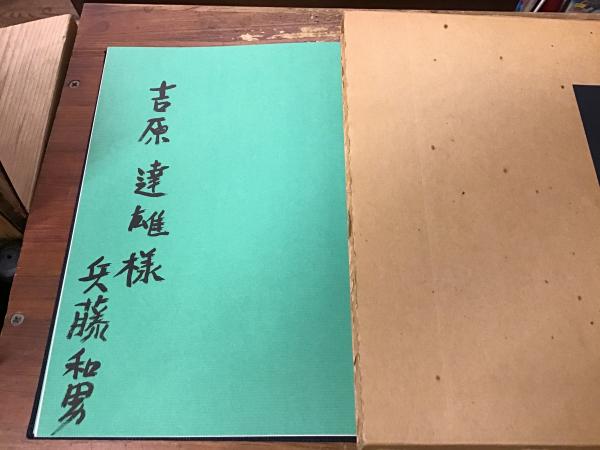 吉原達雄様
兵藤和男